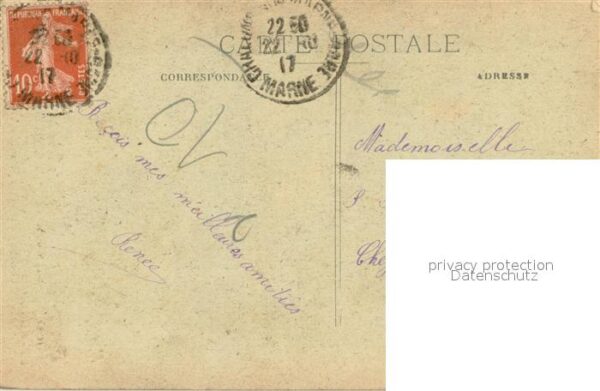 REPUBLIQUE FRANÇAISE
10c POSTES
22 30
22 - 10
17
MARNE
22 30
22 - 10
17
CHALONS-S-MARNE
MARNE
CARTE POSTALE
CORRESPONDANCE
ADRESSE
Reçois mes meilleures amitiés
Renée
Mademoiselle
privacy protection
Datenschutz